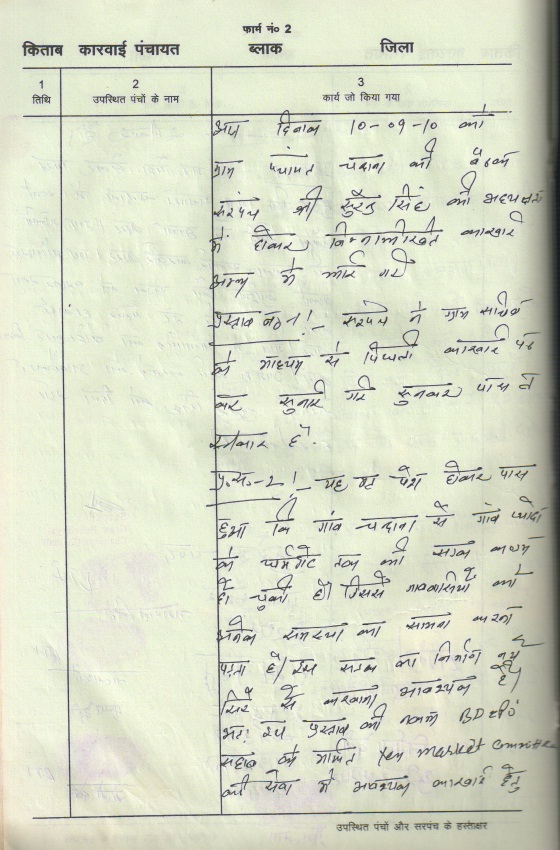 फार्म नं० 2
किताब कारवाई पंचायत ब्लाक जिला
1 2 3
तिथि उपस्थित पंचों के नाम कार्य जो किया गया
आज दिनांक 10-09-10 को
ग्राम पंचायत की बैठक
सरपंच श्री सुरेन्द्र सिंह की अध्यक्षता
में होकर निम्नलिखित कारवाई
अमल में लाई गयी
प्रस्ताव न० 1!- सरपंच ने ग्राम सचिव
के माध्यम से पिछली कारवाई पढ
कर सुनाई गई सुनकर पास व
स्वीकार है.
प्र.स.-2!- यह मद पेश होकर पास
हुआ कि गांव से गांव
के तक की सडक
हो चुकी है। जिससे गांववासियों को
अनेक समस्या का सामना करना
पडता है। इस सडक का निर्माण नये
सिरे से करवाना आवश्यक है।
अतः इस प्रस्ताव की नकल
साहब की मार्फत market committee
की सेवा में आवश्यक कारवाई हेतु
उपस्थित पंचों और सरपंच के हस्ताक्षर